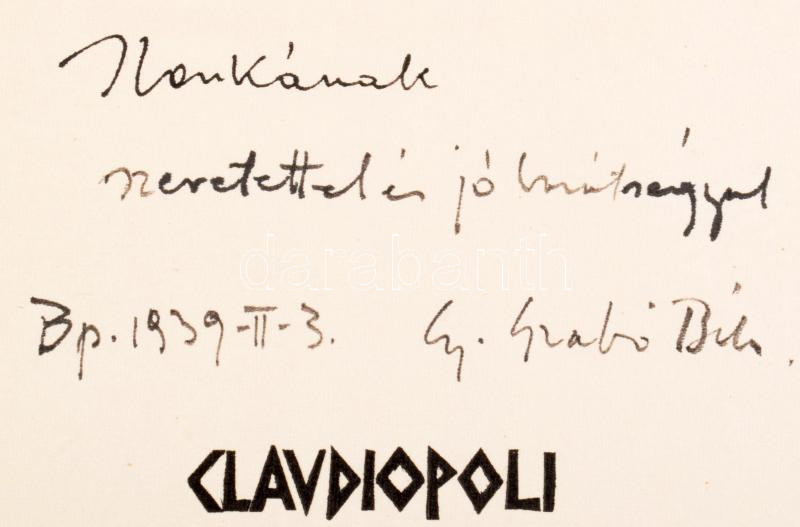 Ilonkának
szeretettel és jó barátsággal
Bp. 1939-II-3. Gy. Szabó Béla.
darabanth
CLAVDIOPOLI